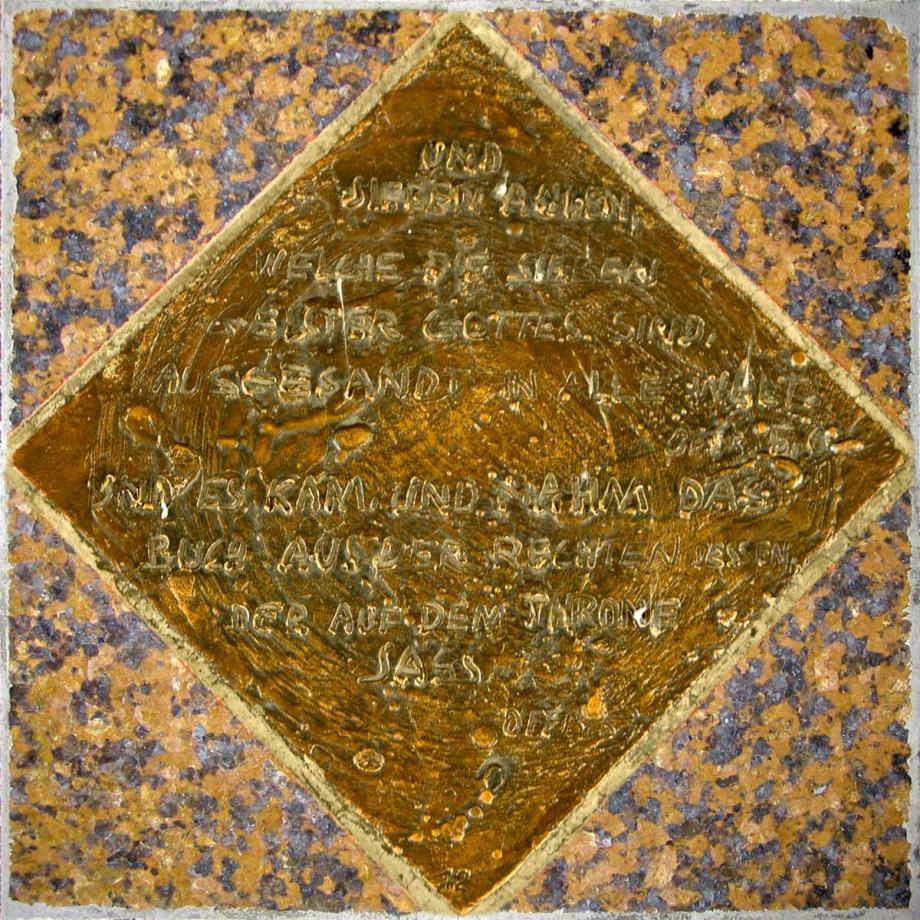 UND
SIEBEN AUGEN,
WELCHE DIE SIEBEN
GEISTER GOTTES SIND.
AUSGESANDT IN ALLE WELT.
OFFB. 5,6
UND ES KAM UND NAHM DAS
BUCH AUS DER RECHTEN DESSEN,
DER AUF DEM THRONE
SASS
OFFB.
12